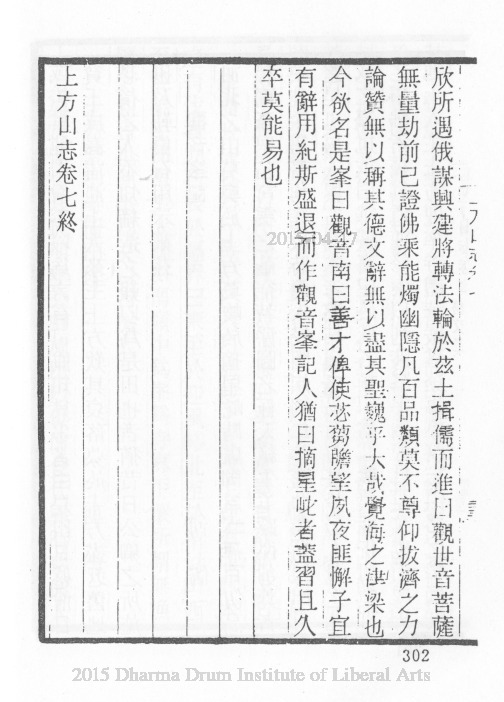 欣所遇俄謀興建將轉法輪於茲土揖儒而進曰觀世音菩薩
無量劫前已證佛乘能燭幽隱凡百品類莫不尊仰拔濟之力
論贊無以稱其德文辭無以盡其聖巍乎大哉覺海之津梁也
今欲名是峯曰觀音南曰善才俾使苾蒭瞻望夙夜匪懈子宜
有辭用紀斯盛退而作觀音峯記人猶曰摘星岮者蓋習且久
卒莫能易也
上方山志卷七終
2015/04/27
302
2015 Dharma Drum Institute of Liberal Arts